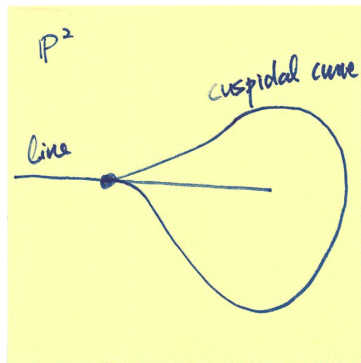 ℙ²
cuspidal curve
line